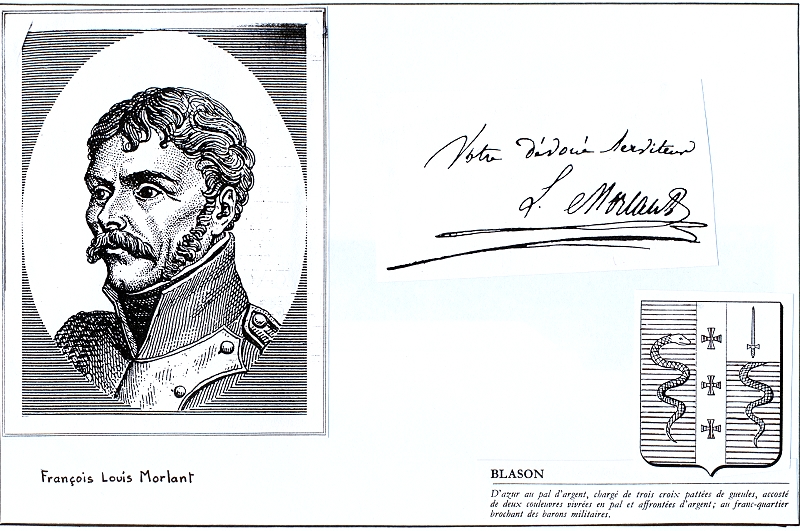 Votre dévoué serviteur
L. Morland
François Louis Morlant
BLASON
D'azur au pal d'argent, chargé de trois croix pattées de gueules, accosté
de deux couleuvres vivrées en pal et affrontées d'argent; au franc-quartier
brochant des barons militaires.